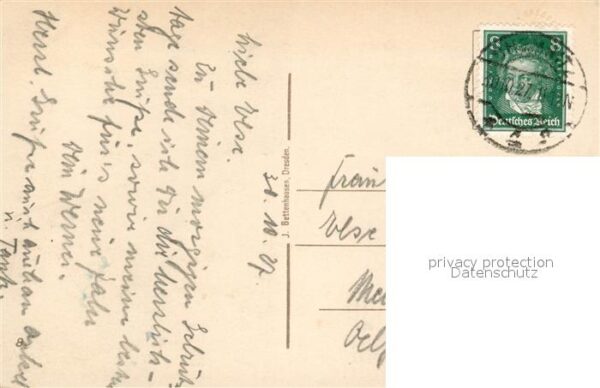 30.10.27
Liebe Else.
Zu Deinem morgigen Geburts-
tage sende ich Dir die herzlich-
sten Grüße, sowie meine besten
Wünsche für's neue Jahr
Dein Werner.
Herzl. Grüße auch an
n. Tante.
J. Bettenhausen, Dresden.
8 8
Deutsches Reich
Fräul
Else
Me
Oel
privacy protection
Datenschutz